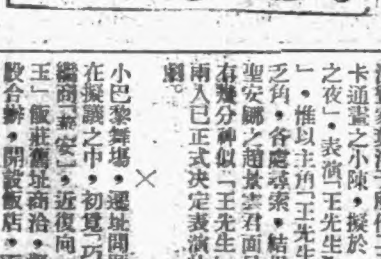 卡通畫之小陳，擬於
之夜」，表演「王先生
」，惟以主角「王先生
乏角，各處尋索，結
聖安娜之趙景雲君面
有幾分神似「王先生
兩人已正式决定表演
劇。
×
小巴黎舞場，遷址問
在擬議之中，初覓「巧
繼商泰安」，近復向
玉」飯莊舊址商洽，
股合辦，開設飯店，